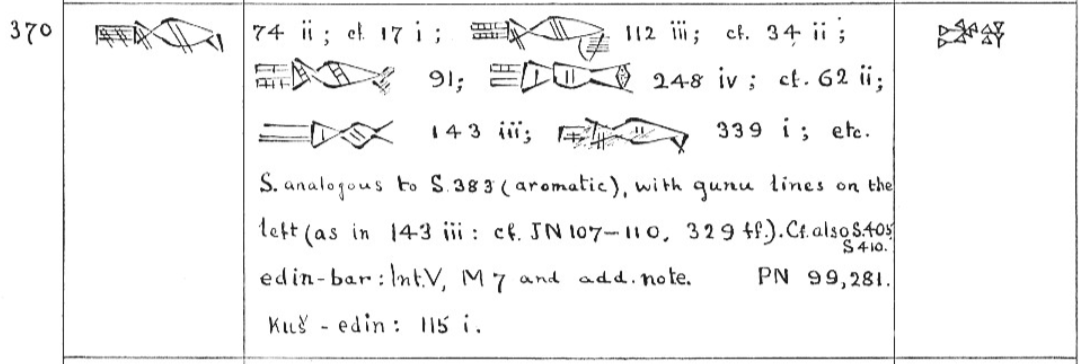 370 74 ii ; cf. 17 i ; 112 iii ; cf. 34 ii ;
91 ; 248 iv ; cf. 62 ii ;
143 iii ; 339 i ; etc.
S. analogous to S.383 (aromatic), with gunu lines on the
left (as in 143 iii : cf. JN 107-110, 329 ff.). Cf. also S.405
S410.
edin-bar : Int.V, M 7 and add. note. PN 99,281.
Kuš - edin : 115 i.